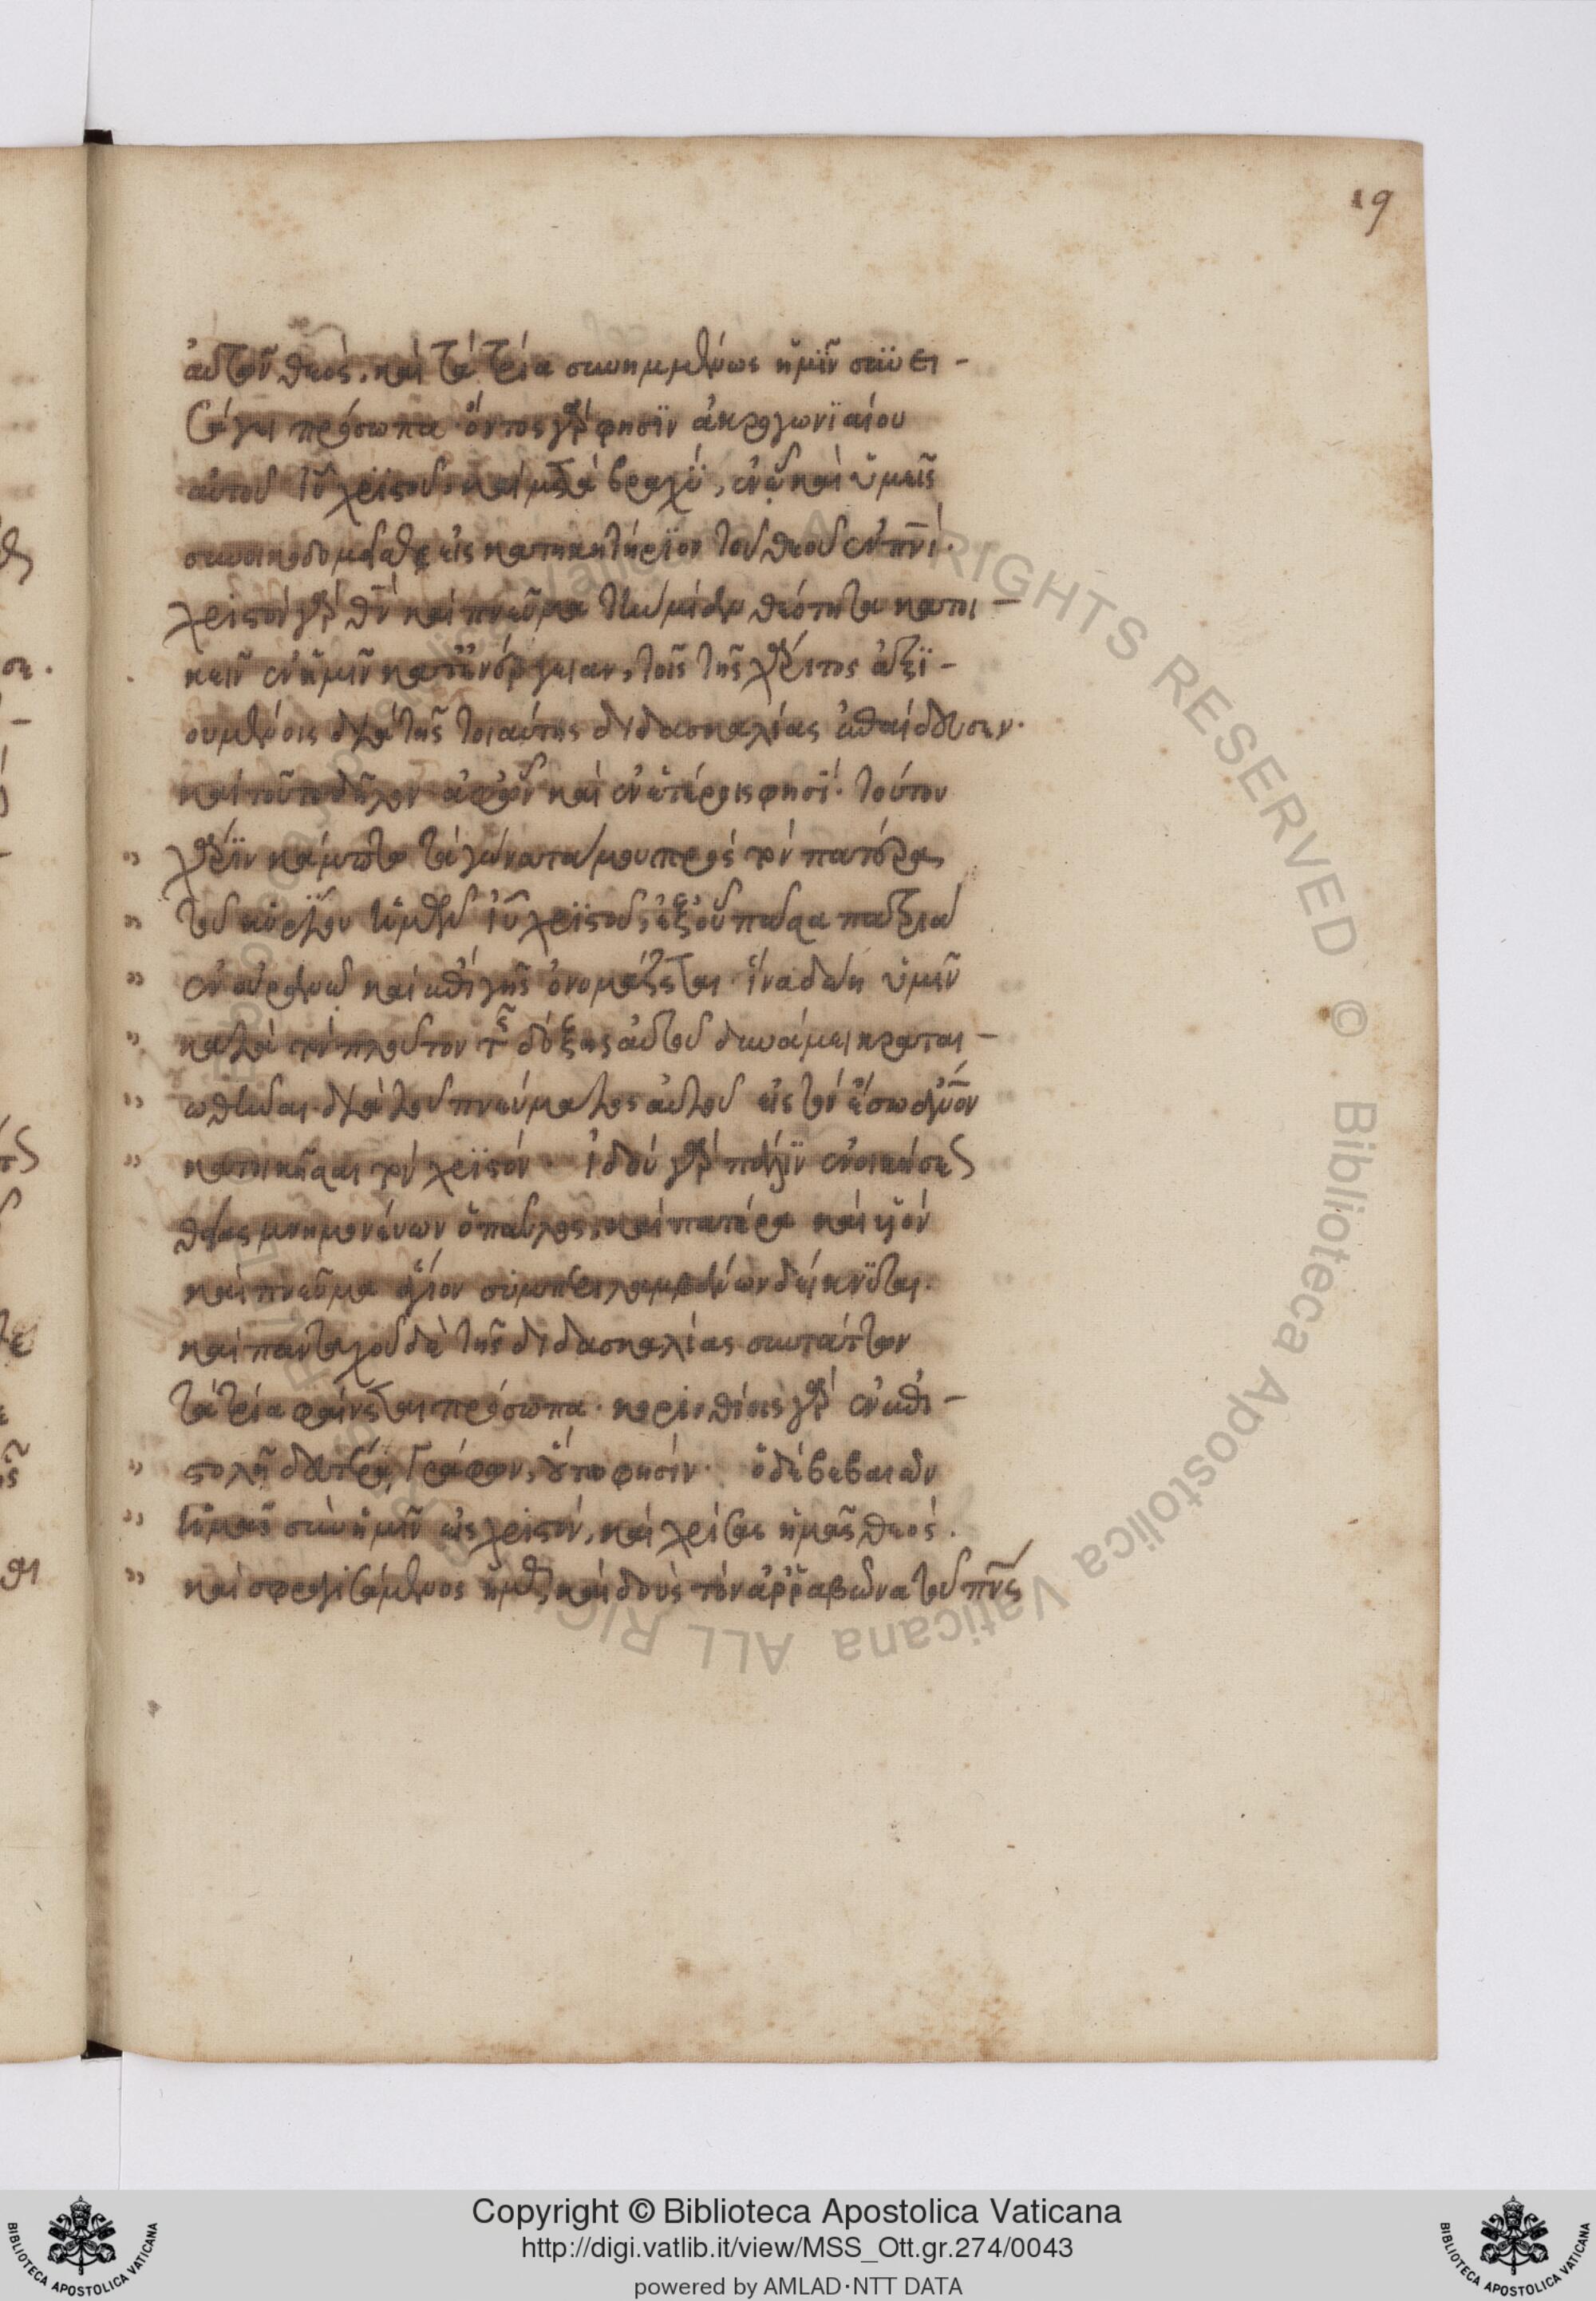 19
αὐτὸν θεός. καὶ τὰ τρία συνημμένως ἡμῖν συνει-
σάγει πρόσωπα· ὄντος γάρ φησϊν ἀκρογωνϊαίου
αὐτοῦ ἰυ χριστοῦ. καὶ μετὰ βραχὺ, ἐν ῷ καὶ ὑμεῖς
συνοικοδομεῖσθε εἰς κατοικητήριον τοῦ θεοῦ ἐν πνι.
χριστὸν γὰρ θν καὶ πνεῦμα τὴν μίαν θεότητα κατοι-
κεῖν ἐν ἡμῖν κατ' ἐνέργειαν, τοῖς τῆς χάριτος ἀξϊ-
ουμένοις διὰ τῆς τοιαύτης διδασκαλίας ἐπαίδευσεν.
καὶ τοῦτο δῆλον ἀφ' ὧν καὶ ἐν ἑτέροις φησί. τούτου
" χάρϊν κάμπτω τὰ γόνατα μου πρὸς τὸν πατέρα
" τοῦ κυρίου ἡμῶν ἰυ χριστοῦ, ἐξ οὗ πᾶσα πατριὰ
" ἐν οὐρανῷ καὶ ἐπὶ γῆς ὀνομάζεται· ἵνα δώη ὑμῖν
" κατὰ τὸν πλοῦτον τῆς δόξης αὐτοῦ δυνάμει κραται-
" ωθῆναι διὰ τοῦ πνεύματος αὐτοῦ εἰς τὸν ἔσω ἄνον
" κατοικῆσαι τὸν χριστόν. ἰδοὺ γὰρ πάλϊν ἐνοικήσεως
θείας μνημονεύων ὁ παῦλος, καὶ πατέρα καὶ υἱὸν
καὶ πνεῦμα ἅγιον συμπεριλαμβάνων δείκνϋται.
καὶ πανταχοῦ δὲ τῆς διδασκαλίας συντάττων
τὰ τρία φαίνεται πρόσωπα. κορινθίοις γὰρ ἐν ἐπι-
" στολῆ δευτέρᾳ γράφων, οὕτω φησίν. ὁ δὲ βεβαιῶν
" ὑμᾶς σὺν ἡμῖν εἰς χριστόν, καὶ χρίσας ἡμᾶς θεός.
" καὶ σφραγισάμενος ἡμᾶς, καὶ δοὺς τὸν ἀρραβῶνα τοῦ πνς
Copyright © Biblioteca Apostolica Vaticana
http://digi.vatlib.it/view/MSS_Ott.gr.274/0043
powered by AMLAD·NTT DATA